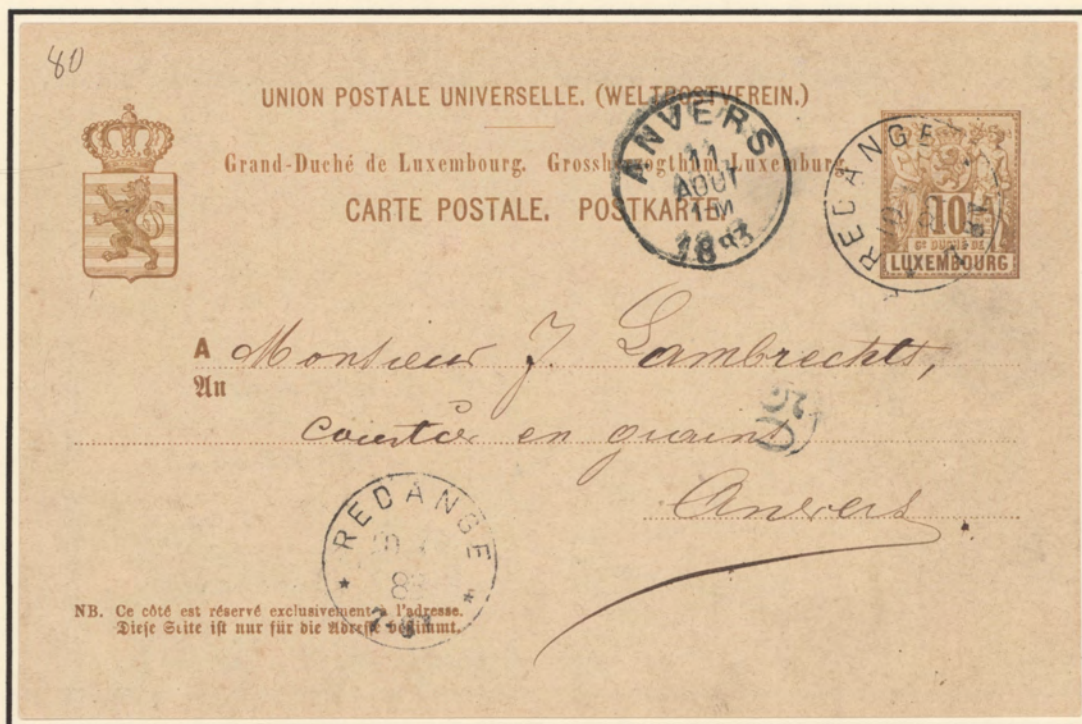 80
UNION POSTALE UNIVERSELLE. (WELTPOSTVEREIN.)
Grand-Duché de Luxembourg. Grossherzogthum Luxemburg.
CARTE POSTALE. POSTKARTE.
ANVERS
11
AOUT
1893
REDANGE
10
Gd DUCHÉ DE
LUXEMBOURG
A Monsieur J. Lambrechts,
An
courtier en grains
Anvers
REDANGE
NB. Ce côté est réservé exclusivement à l'adresse.
Diese Seite ist nur für die Adresse bestimmt.